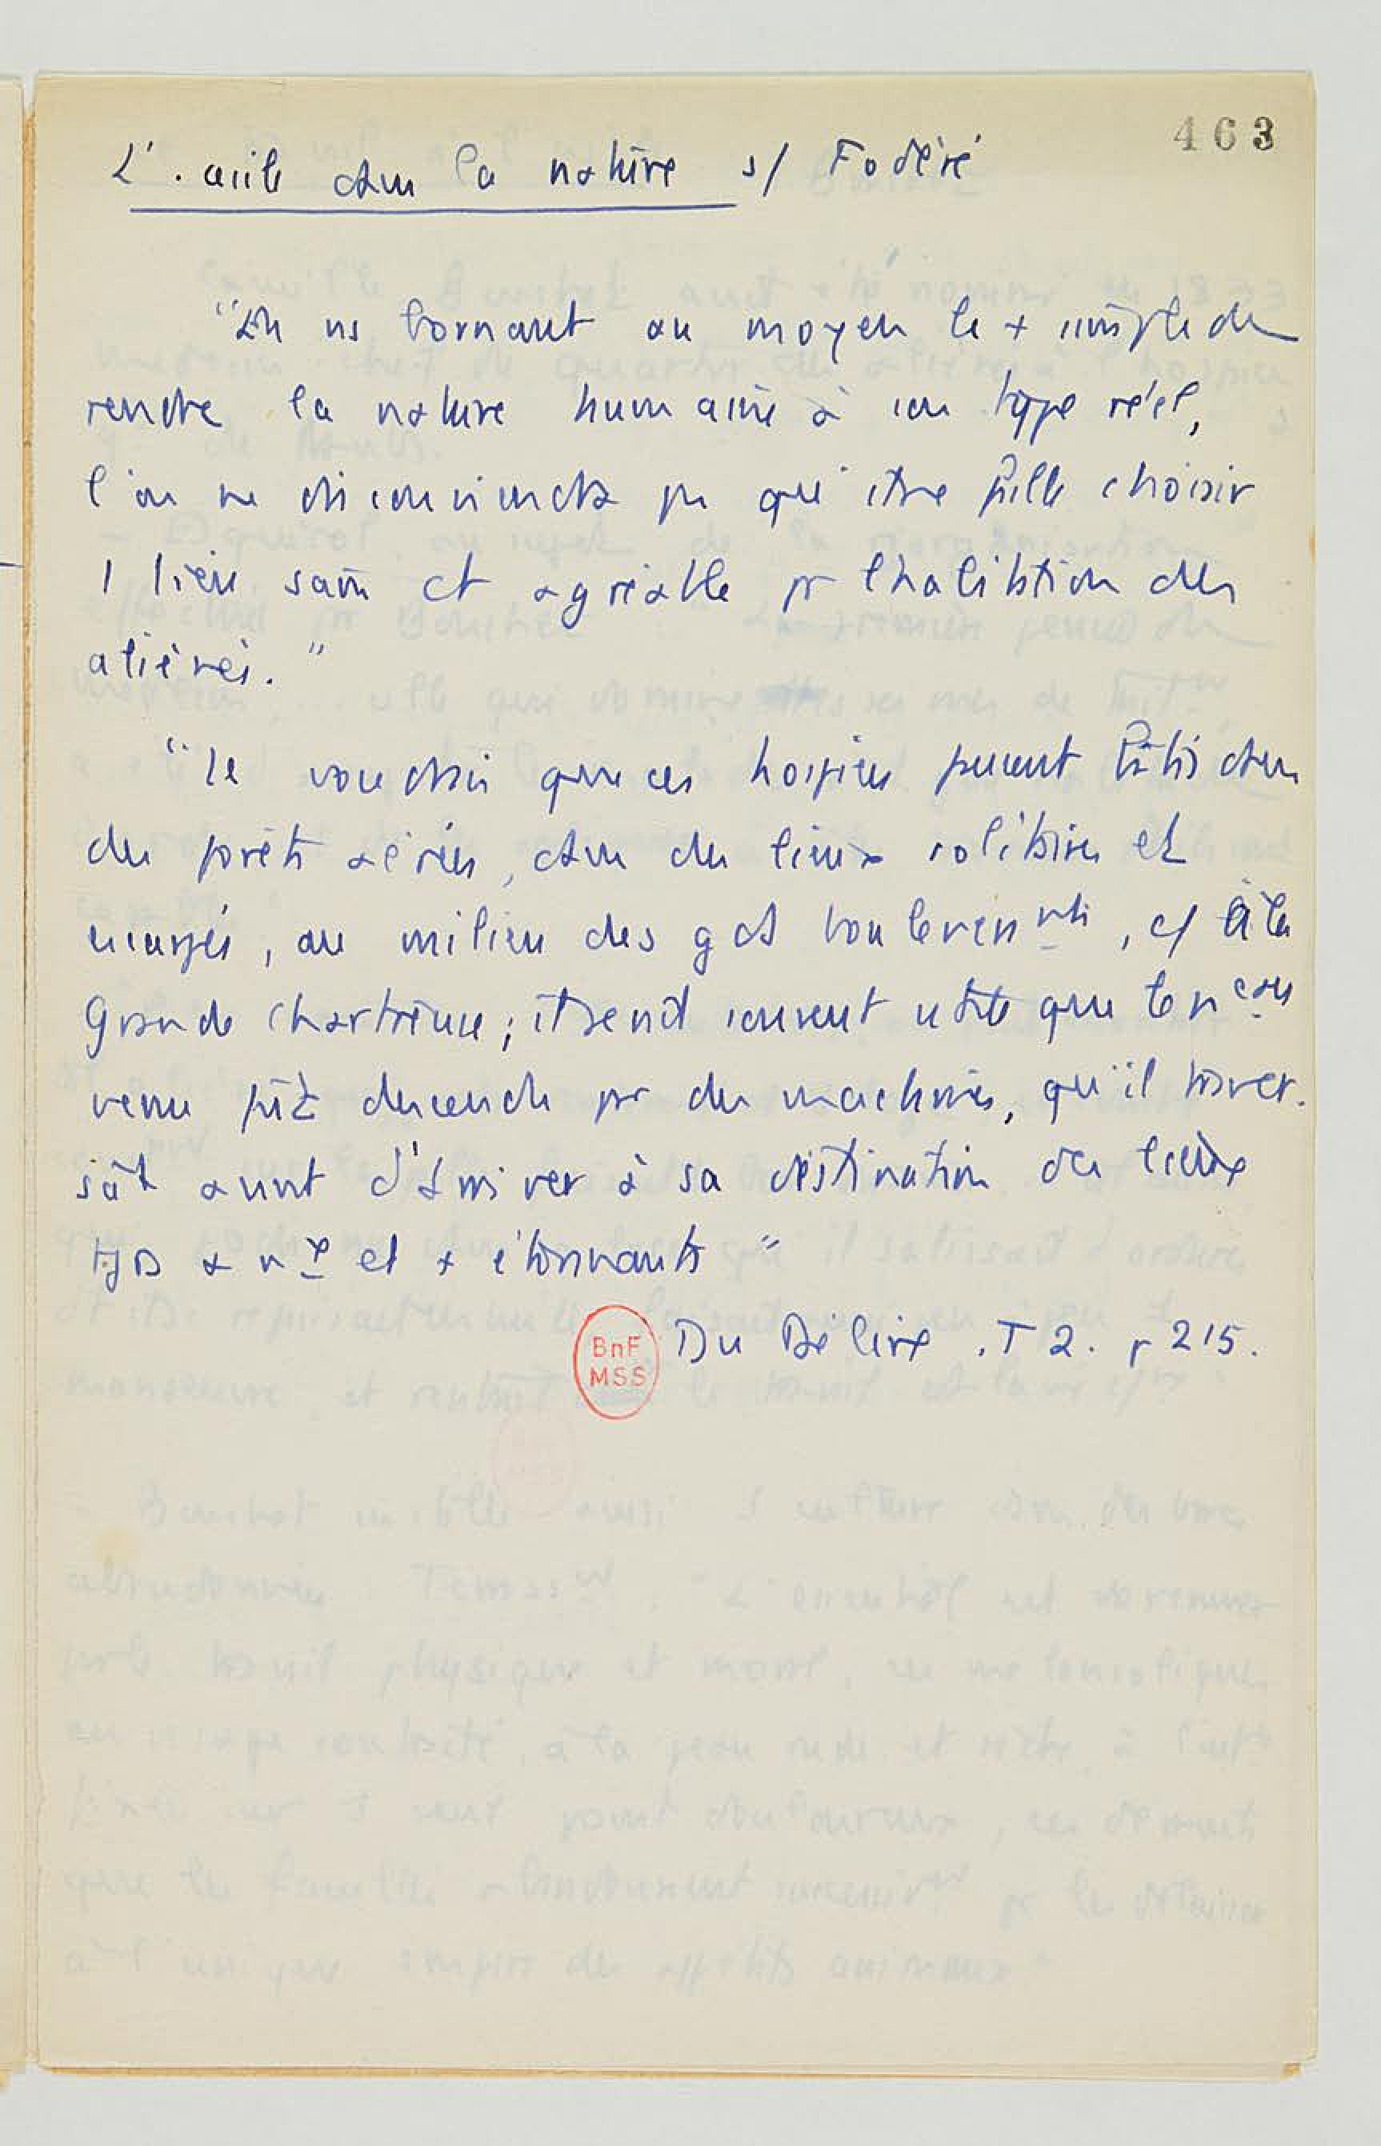 463
L'asile dans la nature s/ Fodéré
"En ns bornant au moyen le + simple de
rendre la nature humaine à son type réel,
l'on ne disconviendra pas qu'il faille choisir
1 lieu sain et agréable pr l'habitation des
aliénés."
"Je voudrais que ces hospices fussent bâtis dans
des forêts sacrées, dans des lieux solitaires et
escarpés, au milieu des gds bouleversmts, c/ à la
Grande Chartreuse; il serait souvent utile que le
venu fût descendu par des machines, qu'il traver-
sât avant d'arriver à sa destination des lieux
tjs + nx et + étonnants"
Du Délire. T 2. p 215.
BnF
MSS